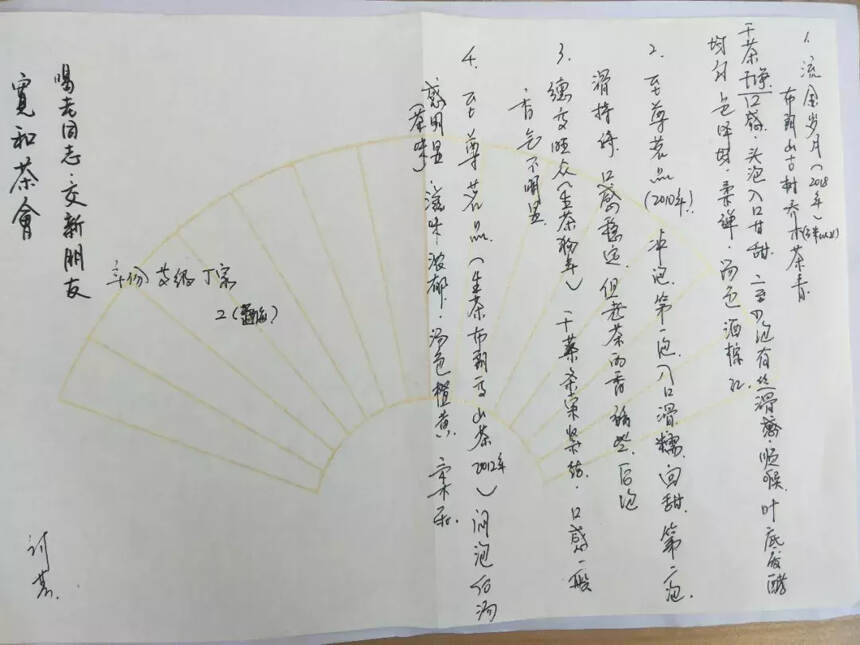 1. 流金岁月(2018年)
布朗山古树乔木茶青
干茶干净,口感,头泡入口甘甜,二至四泡有丝滑感,顺喉,叶底发酵
均匀,色泽好,柔弹,汤色酒棕红
2. 至尊茗品(2010年)冲泡,第一泡入口滑糯,回甜,第二泡
滑持续,口感稳定,但老茶的香稍些,后泡
3. 德交旺众(生茶狗年)干茶条索紧结,口感一般
香气不明显
4. 至尊茗品(生茶布朗高山茶2012年)闷泡后汤
感明显,滋味浓郁,汤色橙黄
茶味
年份 等级 厂家
喝老同志·交新朋友
寬和茶會